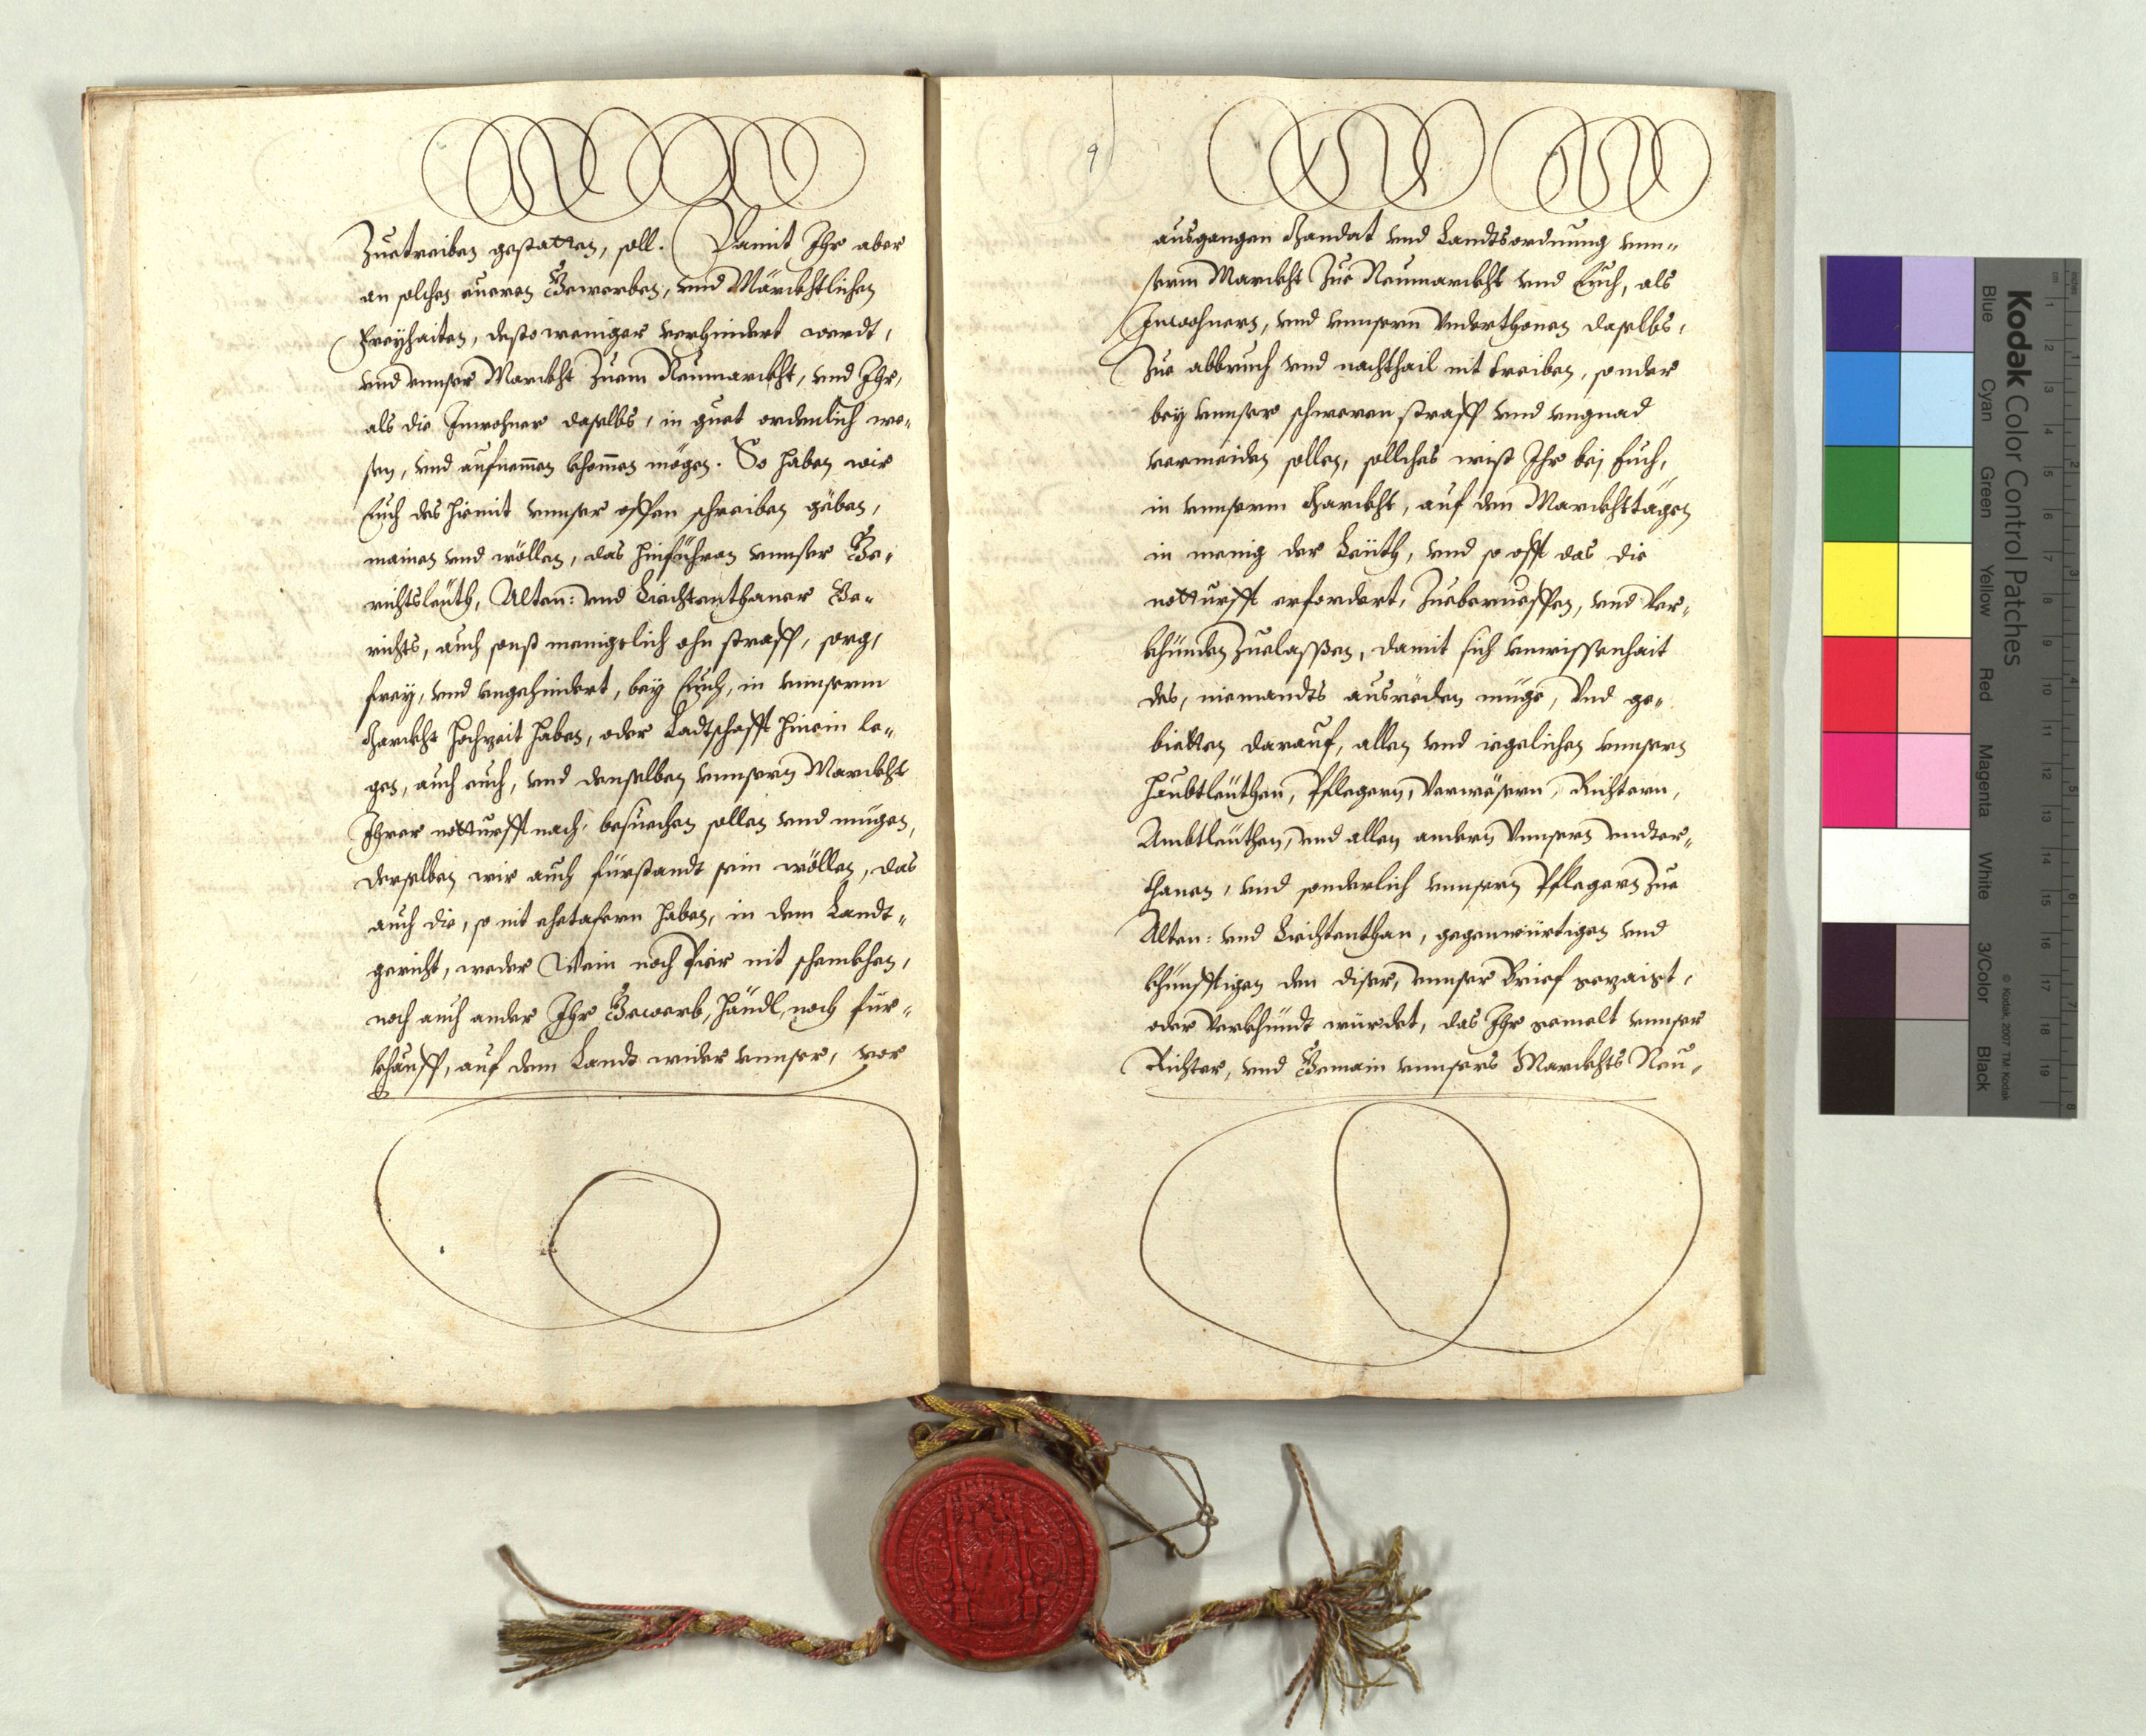 Zuetreiben gestatten, soll. Damit Ihr aber
an solchen eueren Gewerben, vnd Märckhtlichen
Freyhaiten, desto weniger verhindert werdt,
vnd vnnser Marckht Zuem Neumarckht, vnd Ihr,
als die Inwohner daselbs, in guet ordenlich we„
sen, vnd aufnem̄en khom̄en mögen. So haben wir
Euch des hiemit vnnser offen schreiben geben,
mainen vnd wöllen, das hinführan vnnser Ge„
richtsleüth, Alten: vnd Liechtenthaner Ge„
richts, auch sonst menigelich ohn straff, sorg,
frey, vnd vngehindert, bey Euch, in vnnserm
Marckht Hochzeit haben, oder Ladtschafft hinein le„
gen, auch euch, vnd denselben vnnsern Marckht
Ihrer notturfft nach, besuechen sollen vnd mügen,
derselben wir auch fürstandt sein wöllen, das
auch die, so nit ehetafern haben, in dem Landt„
gericht, weder Wein noch Pier nit schenckhen,
noch auch ander Ihr Gewerb, händl, noch für„
khauff, auf dem Landt wider vnnser, vor
9
ausgangen Mandat vnd Landtsordnung vnn„
serm Marckht Zue Neumarckht vnd Euch, als
Inwohnern, vnd vnnserm Vnderthonen daselbs,
Zue abbruch vnd nachthail nit treiben, sonder
bey vnnser schweren straff vnd vngnad
vermeiden sollen, sollches wist Ihr bei Euch,
in vnnserm Marckht, auf den Marckhttägen
in menig der Leüth, vnd so offt das die
notturfft erfordert, Zueberueffen, vnd Ver„
khünden Zuelassen, damit sich vnwissenhait
des, niemandts ausreden müge, Vnd ge„
bietten darauf, allen vnd iegelichen vnnsern
Haubtleüthen, Pflegern, Verwesern, Richtern,
Ambtleüthen, vnd allen andern Vnnsern vndter„
thanen, vnd sonderlich vnnsern Pflegern Zue
Alten: vnd Liechtenthan, gegenwürtigen vnd
khünfftigen den diser, vnnser Brief gezaigt,
oder Verkhündt würdet, das Ihr gemelt vnnser
Richter, vnd Gemain vnnsers Marckhts Neu„
Kodak Color Control Patches
Blue
Cyan
Green
Yellow
Red
Magenta
White
3/Color
Black
© Kodak, 2007 TM: Kodak